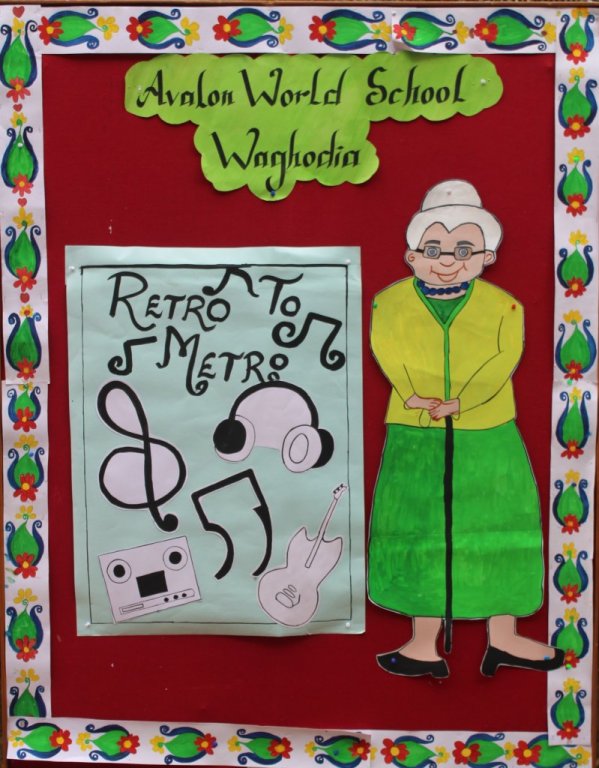 Avalon World School
Waghodia
RETRO TO
METRO